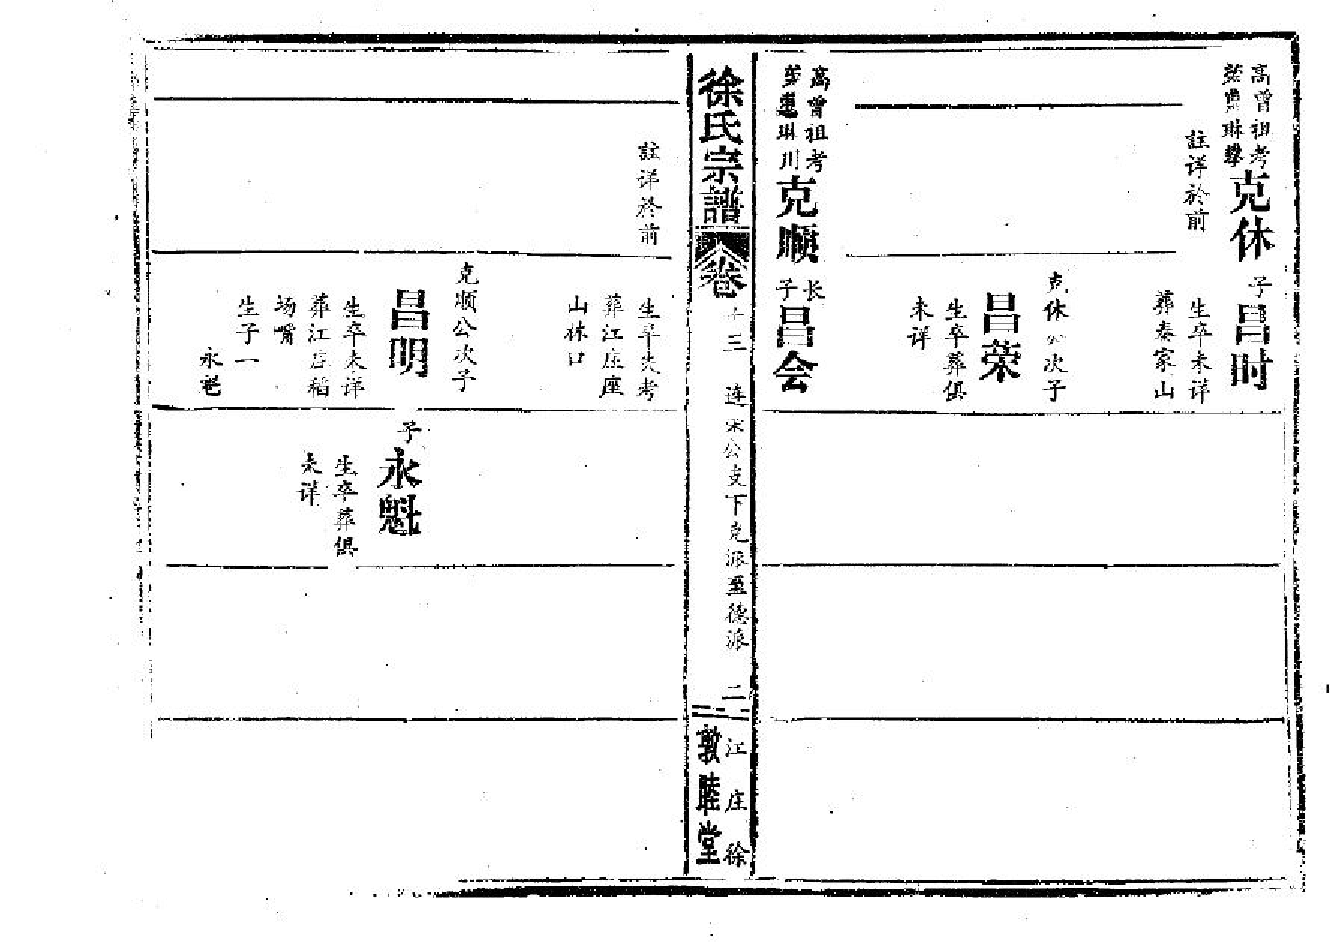 高曾祖考
琳
克休
註详於前
子
昌时
生卒未详
葬秦家山
克休公次子
昌荣
生卒葬俱
未详
高曾祖考
琳川
克顺
长子
昌会
徐氏宗譜
卷
十三
连宋公支下克派至德派
二
江庄徐
敦睦堂
註详於前
生卒失考
葬江庄座
山林口
克顺公次子
昌明
生卒未详
葬江庄稻
场嘴
生子一
永魁
子
永魁
生卒葬俱
未详